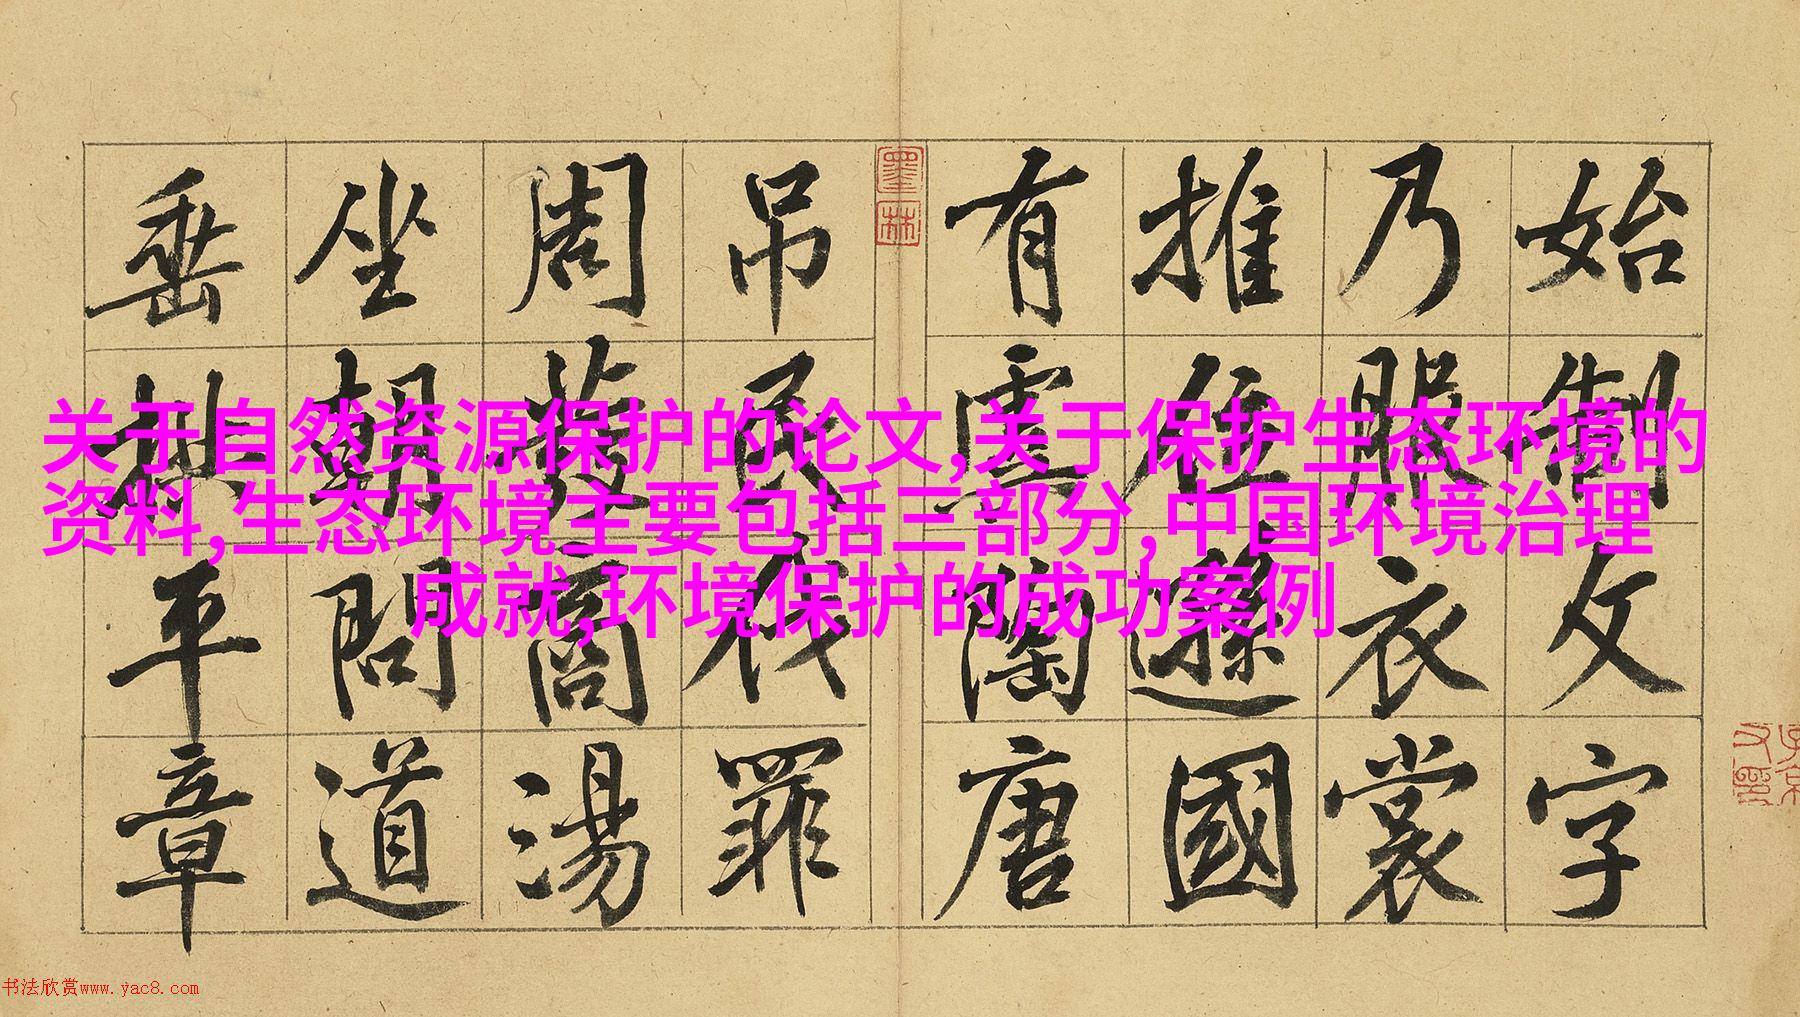 关于自然资源保护的论文,关于保护生态环境的
资料,生态环境主要包括三部分,中国环境治理
成就,环境保护的成功案例
始制文字
乃服衣裳
推位遜國
有虞陶唐
墨林
吊民伐罪
周發商湯
坐朝問道
垂拱平章
书法欣赏www.yac8.com